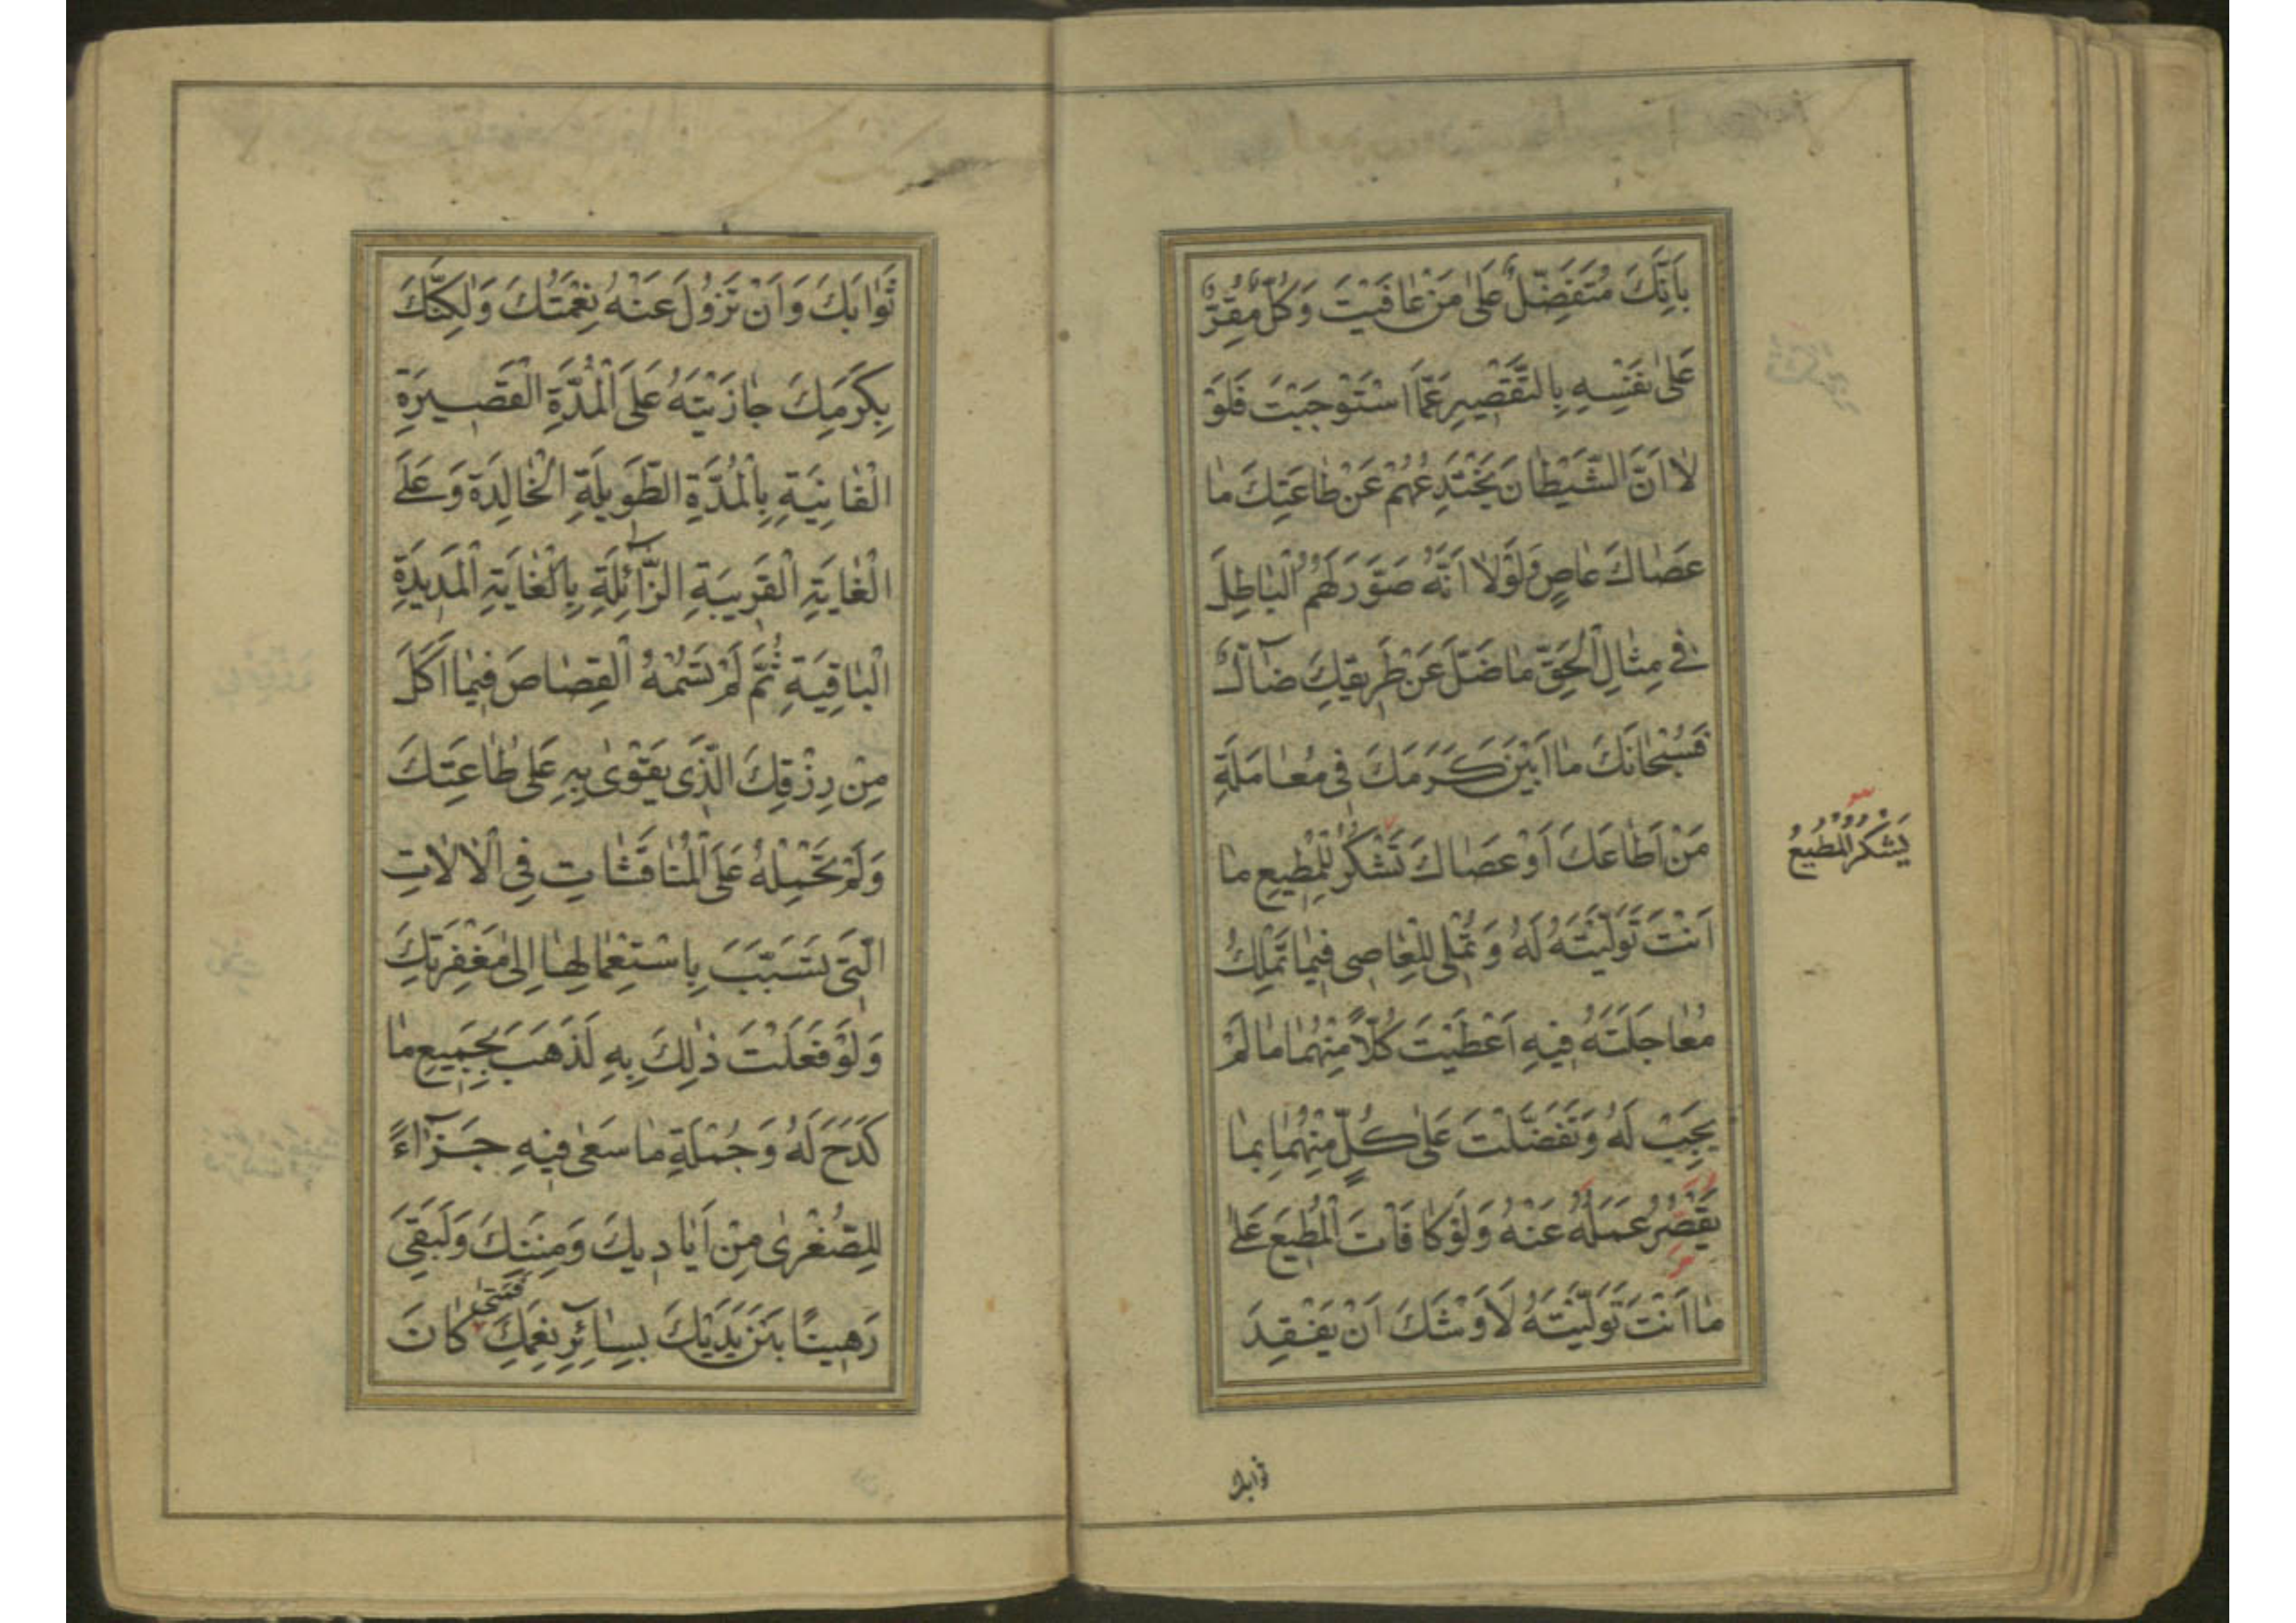 بِاَنَّكَ مُتَفَضِّلٌ عَلٰى مَنْ عٰافَيْتَ وَكُلٌّ مُقِرٌّ
عَلٰى نَفْسِهِ بِالتَّقْصِيرِ عَمَّا اسْتَوْجَبْتَ فَلَوْ
لٰا اَنَّ الشَّيْطٰانَ يَخْتَدِعُهُمْ عَنْ طٰاعَتِكَ مٰا
عَصٰاكَ عٰاصٍ وَلَوْلٰا اَنَّهُ صَوَّرَ لَهُمُ الْبٰاطِلَ
فِى مِثٰالِ الْحَقِّ مٰا ضَلَّ عَنْ طَرِيقِكَ ضٰآلٌّ
فَسُبْحٰانَكَ مٰا اَبْيَنَ كَرَمَكَ فِى مُعٰامَلَةِ
مَنْ اَطٰاعَكَ اَوْ عَصٰاكَ تَشْكُرُ لِلْمُطِيعِ مٰا
يَشْكُرُ الْمُطِيعُ
اَنْتَ تَوَلَّيْتَهُ لَهُ وَتُمْلِى لِلْعٰاصِى فِيمٰا تَمْلِكُ
مُعٰاجَلَتَهُ فِيهِ اَعْطَيْتَ كُلًّا مِنْهُمٰا مٰا لَمْ
يَجِبْ لَهُ وَتَفَضَّلْتَ عَلٰى كُلٍّ مِنْهُمٰا بِمٰا
يَقْصُرُ عَمَلُهُ عَنْهُ وَلَوْ كٰافَاْتَ الْمُطِيعَ عَلٰى
مٰا اَنْتَ تَوَلَّيْتَهُ لَاَوْشَكَ اَنْ يَفْقِدَ
ثوابك
ثَوٰابَكَ وَاَنْ تَزُولَ عَنْهُ نِعْمَتُكَ وَلٰكِنَّكَ
بِكَرَمِكَ جٰازَيْتَهُ عَلَى الْمُدَّةِ الْقَصِيرَةِ
الْفٰانِيَةِ بِالْمُدَّةِ الطَّوِيلَةِ الْخٰالِدَةِ وَعَلَى
الْغٰايَةِ الْقَرِيبَةِ الزّٰآئِلَةِ بِالْغٰايَةِ الْمَدِيدَةِ
الْبٰاقِيَةِ ثُمَّ لَمْ تَسُمْهُ الْقِصٰاصَ فِيمٰا اَكَلَ
مِنْ رِزْقِكَ الَّذِى يَقْوٰى بِهِ عَلٰى طٰاعَتِكَ
وَلَمْ تَحْمِلْهُ عَلَى الْمُنٰاقَشٰاتِ فِى الْاٰلٰاتِ
الَّتِى تَسَبَّبَ بِاسْتِعْمٰالِهٰا اِلٰى مَغْفِرَتِكَ
وَلَوْ فَعَلْتَ ذٰلِكَ بِهِ لَذَهَبَ بِجَمِيعِ مٰا
كَدَحَ لَهُ وَجُمْلَةِ مٰا سَعٰى فِيهِ جَزٰآءً
لِلصُّغْرٰى مِنْ اَيٰادِيكَ وَمِنَنِكَ وَلَبَقِىَ
رَهِينًا بَيْنَ يَدَيْكَ بِسٰآئِرِ نِعَمِكَ فَمَتٰى كٰانَ